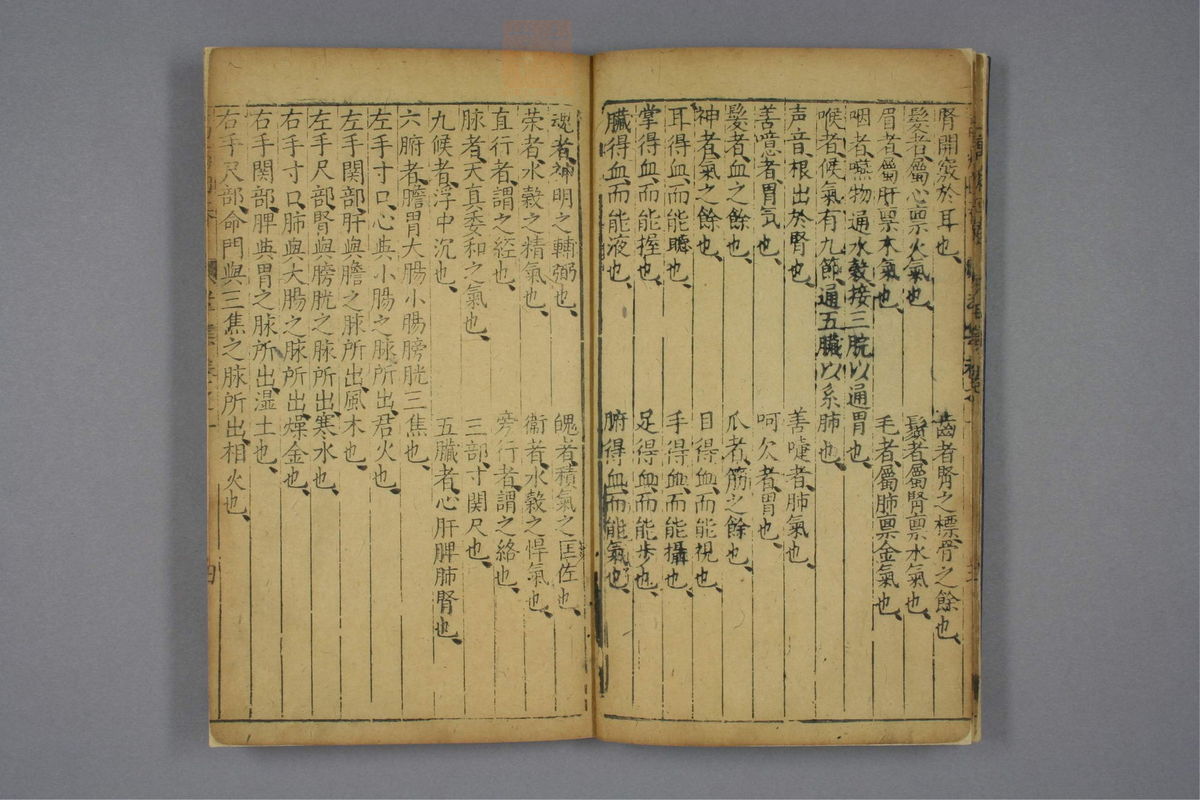 腎開竅於耳也、
齒者腎之標骨之餘也、
髮者屬心禀火氣也、
鬚者屬腎禀水氣也、
眉者屬肝禀木氣也、
毛者屬肺禀金氣也、
咽者嚥物通水穀接三脘以通胃也、
喉者候氣有九節通五臟以系肺也、
声音根出於腎也、
善嚏者肺氣也、
善噫者胃気也、
呵欠者胃也、
髮者血之餘也、
爪者筋之餘也、
神者氣之餘也、
目得血而能視也、
耳得血而能聽也、
手得血而能攝也、
掌得血而能握也、
足得血而能步也、
臟得血而能液也、
腑得血而能氣也、
魂者神明之輔弼也、
魄者積氣之匡佐也、
荣者水穀之精氣也、
衛者水穀之悍氣也、
直行者謂之經也、
旁行者謂之絡也、
脉者天真委和之氣也、
三部寸関尺也、
九候者浮中沉也、
五臟者心肝脾肺腎也、
六腑者膽胃大腸小腸膀胱三焦也、
左手寸口心與小腸之脉所出君火也、
左手関部肝與膽之脉所出風木也、
左手尺部腎與膀胱之脉所出寒水也、
右手寸口肺與大腸之脉所出燥金也、
右手関部脾與胃之脉所出湿土也、
右手尺部命門與三焦之脉所出相火也、
四